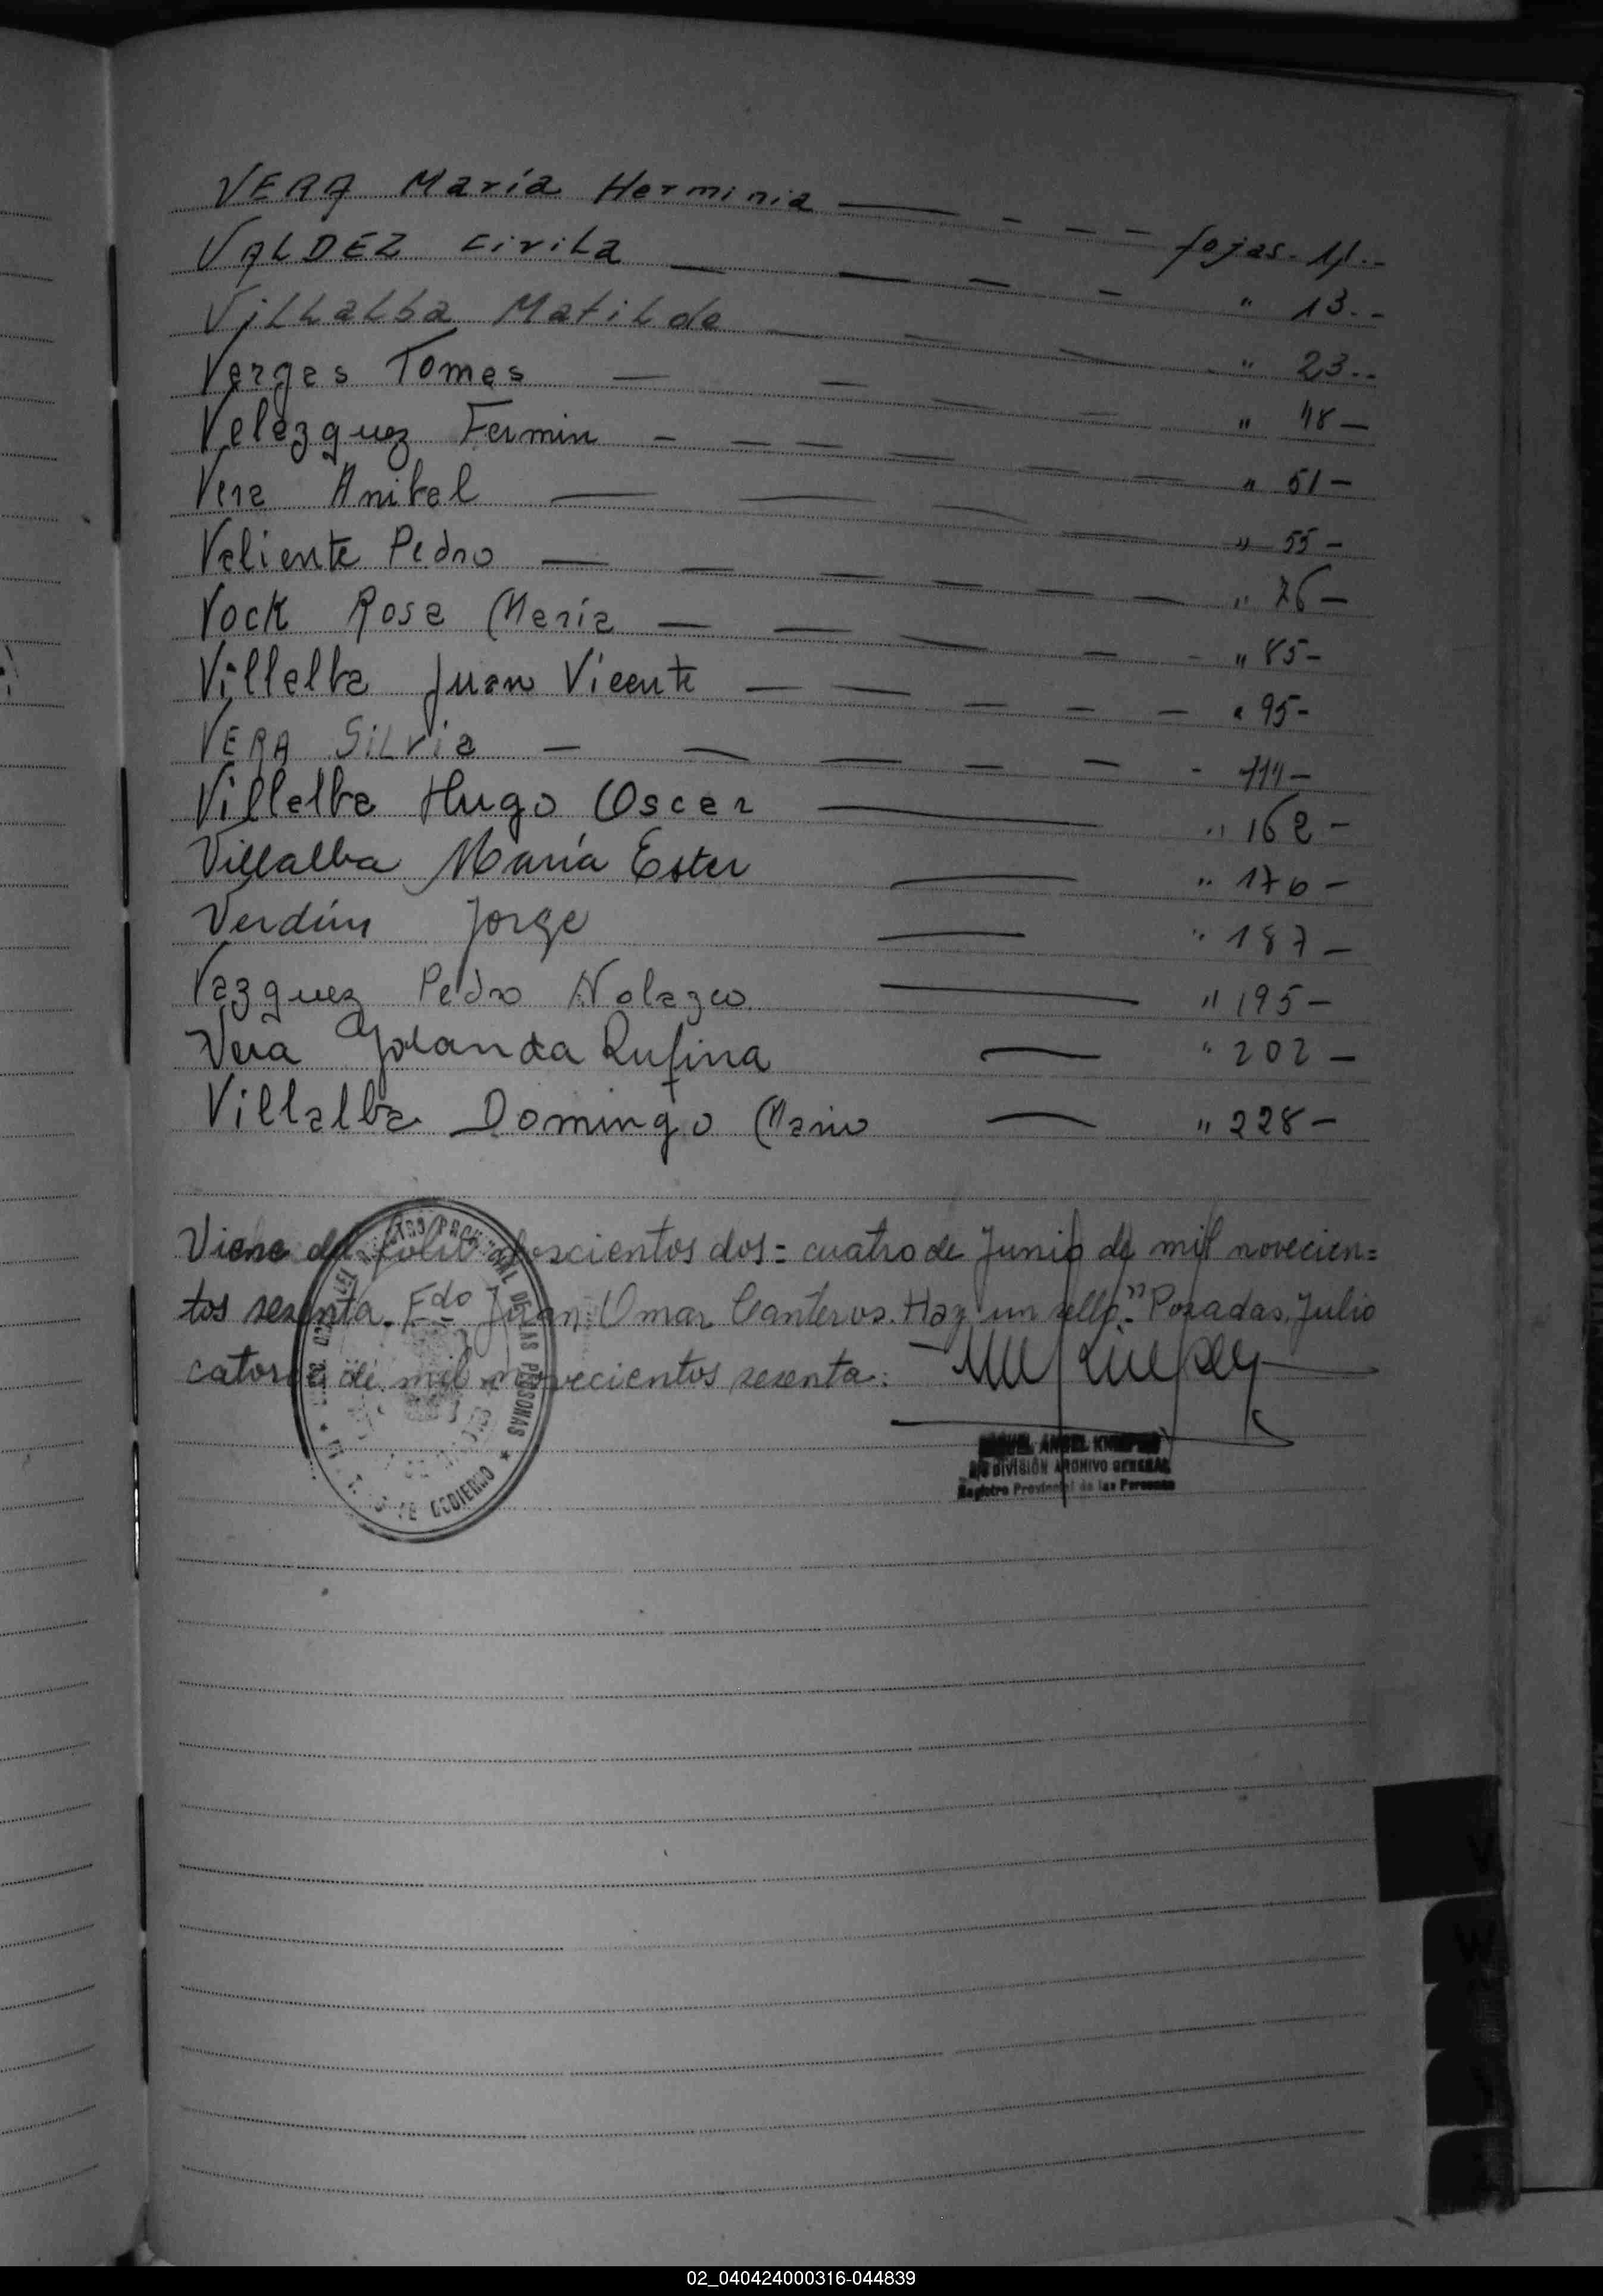 VERA María Herminia — - - - fojas. 11.--
VALDEZ Cirila — — — - " 13.--
Villalba Matilde — — — " 23.--
Vargas Tomas — — — — " 48 —
Velazquez Fermin - — — — — — " 51 —
Vera Anibal — — — — " 55 -
Valiente Pedro — — — — — — " 76 —
Vock Rosa María — — — — - " 85-
Villalba Juan Vicente — — — — — " 95-
VERA Silvia — — — — — - 111 —
Villalba Hugo Oscar — " 162 -
Villalba María Ester — " 176 -
Verdún Jorge — " 187 —
Vazquez Pedro Nolazco — " 195 —
Vera Yolanda Rufina — " 202 —
Villalba Domingo Mario — " 228 —
Viene del folio doscientos dos = cuatro de Junio de mil novecien=
tos sesenta. Fdo Juan Omar Canteros. Hay un sello." Posadas, Julio
catorce de mil novecientos sesenta.
ANGEL
DIVISIÓN ARCHIVO GENERAL
Registro Provincial de las Personas
PROVINCIAL DE LAS PERSONAS
GOBIERNO
V
W
02_040424000316-044839